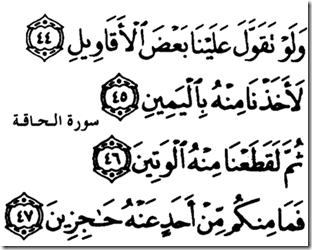 وَلَوْ تَقَوَّلَ عَلَيْنَا بَعْضَ ٱلْأَقَاوِيلِ ٤٤
لَأَخَذْنَا مِنْهُ بِٱلْيَمِينِ ٤٥
سورة الحاقة
ثُمَّ لَقَطَعْنَا مِنْهُ ٱلْوَتِينَ ٤٦
فَمَا مِنكُم مِّنْ أَحَدٍ عَنْهُ حَٰجِزِينَ ٤٧